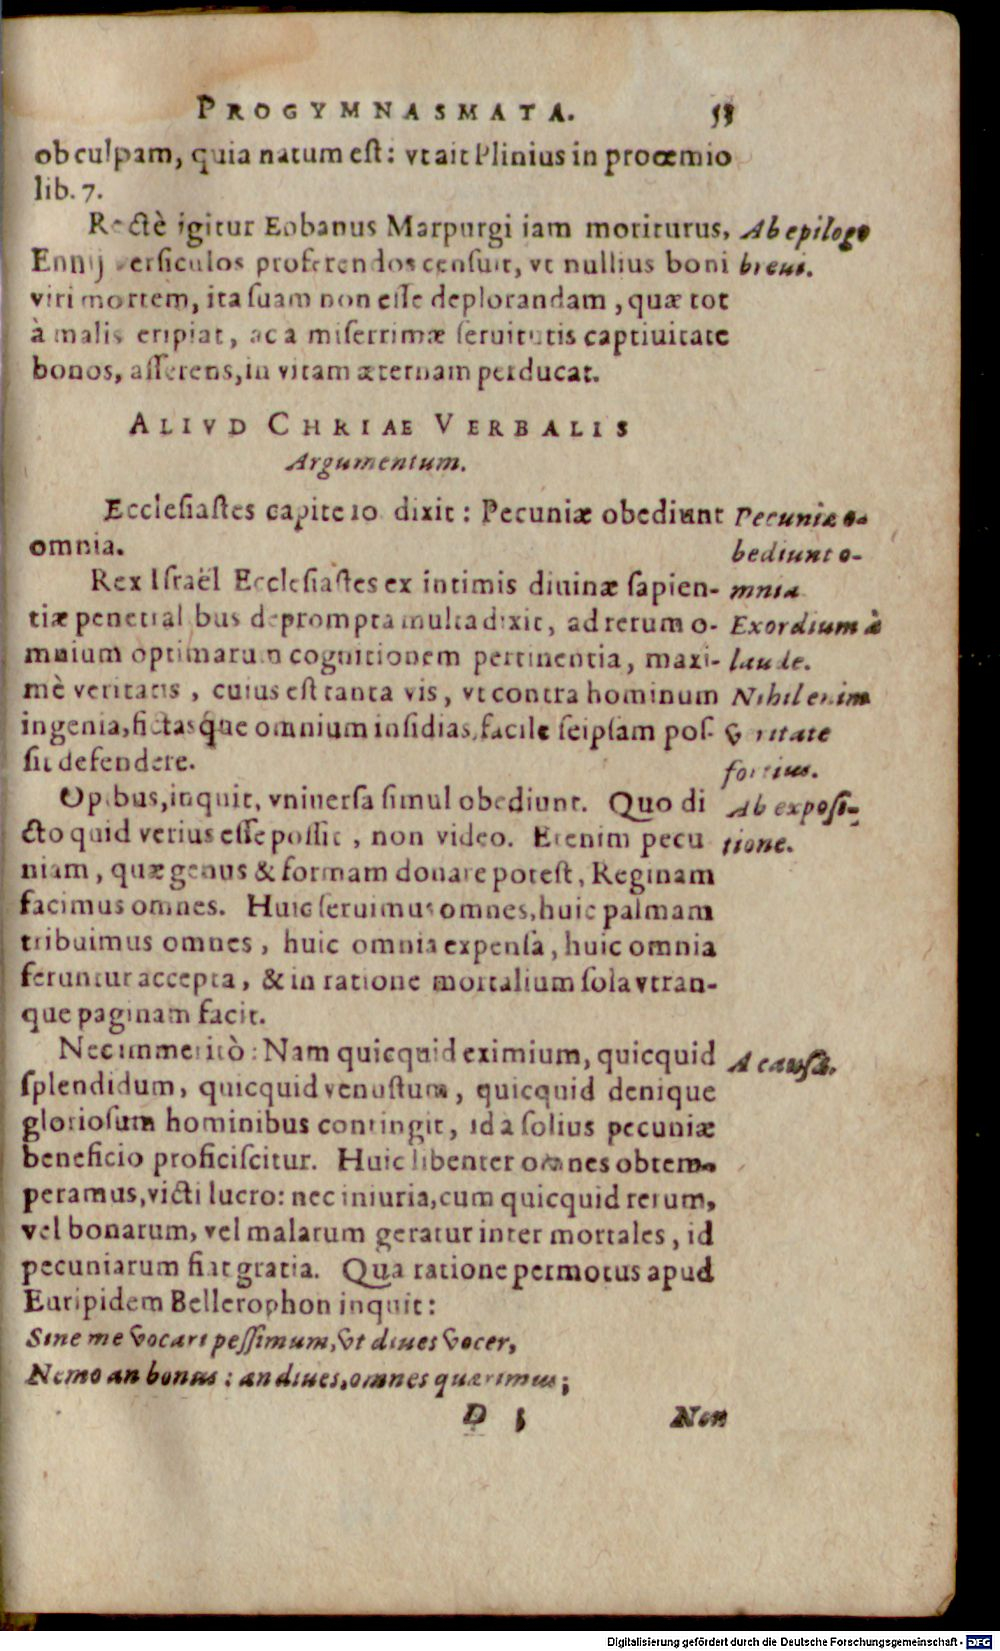 PROGYMNASMATA. 53
ob culpam, quia natum est: vt ait Plinius in prooemio
lib. 7.
Rectè igitur Eobanus Marpurgi iam moriturus, Ab epilogo
Ennij versiculos proferendos censuit, vt nullius boni breui.
viri mortem, ita suam non esse deplorandam, quæ tot
à malis eripiat, ac a miserrimæ seruitutis captiuitate
bonos, asserens, in vitam æternam perducat.
ALIVD CHRIAE VERBALIS
Argumentum.
Ecclesiastes capite 10 dixit: Pecuniæ obediunt Pecuniæ o-
omnia. bediunt o-
Rex Israël Ecclesiastes ex intimis diuinæ sapien- mnia
tiæ penetralibus deprompta multa dixit, ad rerum o- Exordium à
mnium optimarum cognitionem pertinentia, maxi- laude.
mè veritatis, cuius est tanta vis, vt contra hominum Nihil enim
ingenia, fictasque omnium insidias, facile seipsam pos- veritate
sit defendere. fortius.
Opibus, inquit, vniuersa simul obediunt. Quo di Ab exposi-
cto quid verius esse possit, non video. Etenim pecu tione.
niam, quæ genus & formam donare potest, Reginam
facimus omnes. Huic seruimus omnes, huic palmam
tribuimus omnes, huic omnia expensa, huic omnia
feruntur accepta, & in ratione mortalium sola vtran-
que paginam facit.
Nec immeritò: Nam quicquid eximium, quicquid A causa.
splendidum, quicquid venustum, quicquid denique
gloriosum hominibus contingit, id a solius pecuniæ
beneficio proficiscitur. Huic libenter omnes obtem-
peramus, victi lucro: nec iniuria, cum quicquid rerum,
vel bonarum, vel malarum geratur inter mortales, id
pecuniarum fiat gratia. Qua ratione permotus apud
Euripidem Bellerophon inquit:
Sine me vocari pessimum, vt diues vocer,
Nemo an bonus: an diues, omnes quærimus;
D 5 Non
Digitalisierung gefördert durch die Deutsche Forschungsgemeinschaft - DFG